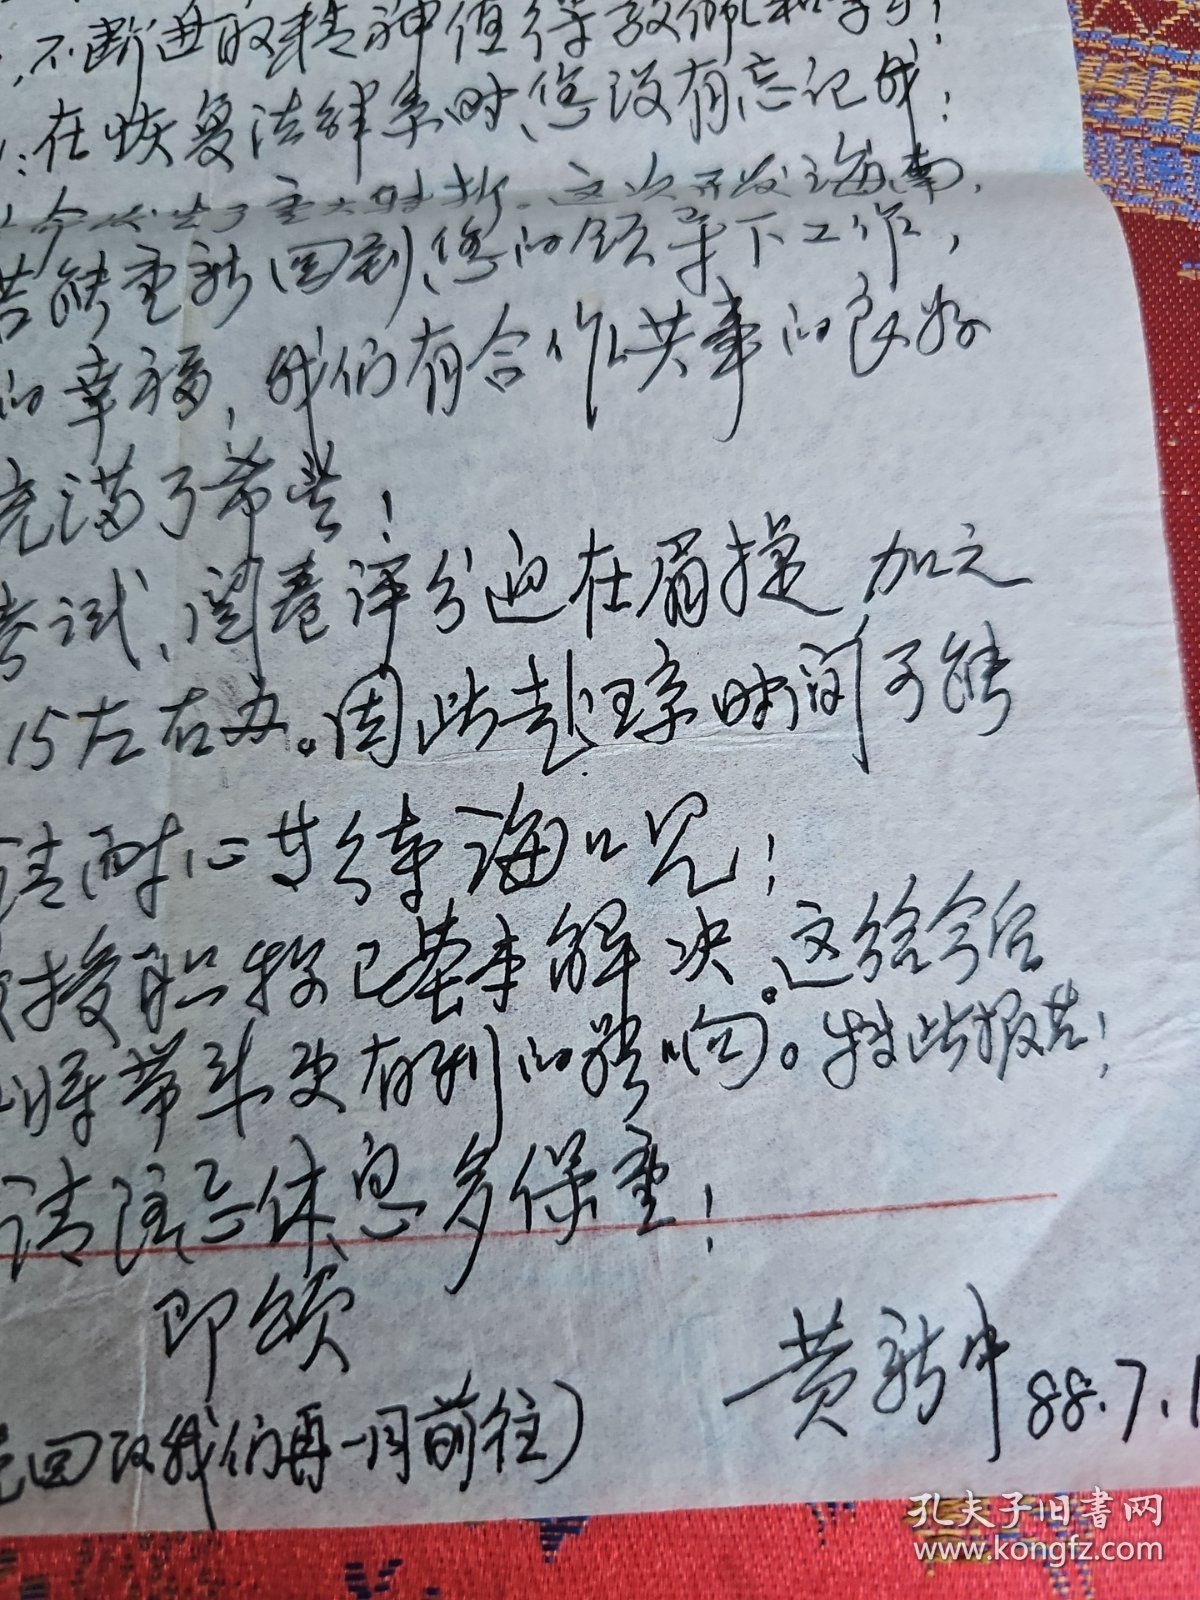 不断进取精神值得敬佩和学习！
：在恢复法律系时，您没有忘记我；
今发生了重大转折。这次开发海南，
若能重新回到您的领导下工作，
的幸福，我们有合作共事的良好
充满了希望！
考试，阅卷评分迫在眉捷 加之
15左右办。因此赴琼时间可能
请耐心等待海口见！
授职称已基本解决。这给今后
将带来更有利的影响。特此报告！
请注意休息多保重！
即颂
回改我们再一同前往）
黄新中 88.7.1
孔夫子旧书网
www.kongfz.com